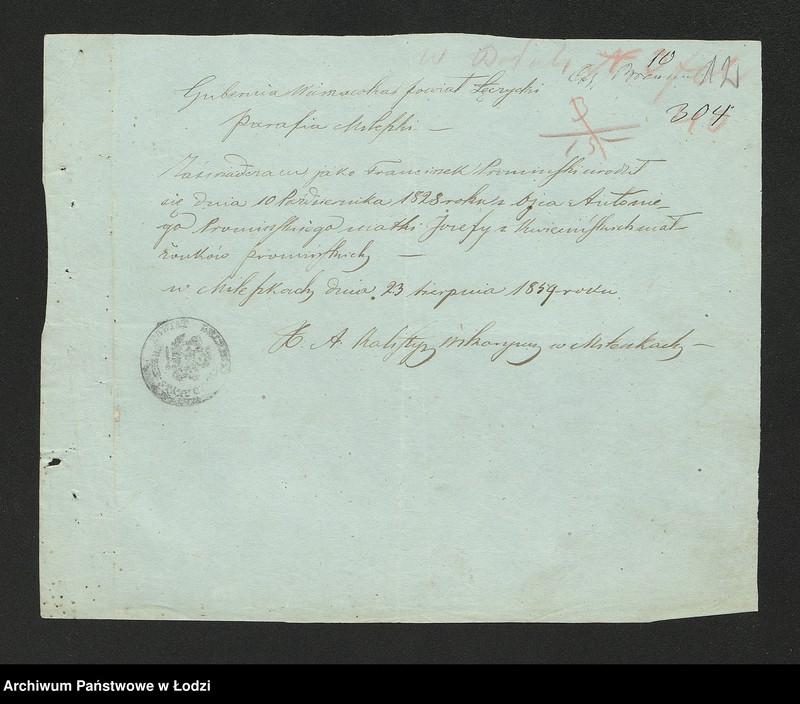 10 12
304
B
15
Gubernia Warszawska powiat Łęczycki
Parafia Mileszki —
Zaświadczam jako Franciszek Promiński urodził
się dnia 10 Października 1828 roku z Ojca Antonie
go Promińskiego matki Jozefy z Kwiecińskich mał
żonków Promińskich —
w Mileszkach dnia 23 sierpnia 1859 roku
X. A. w Mileszkach —
Archiwum Państwowe w Łodzi